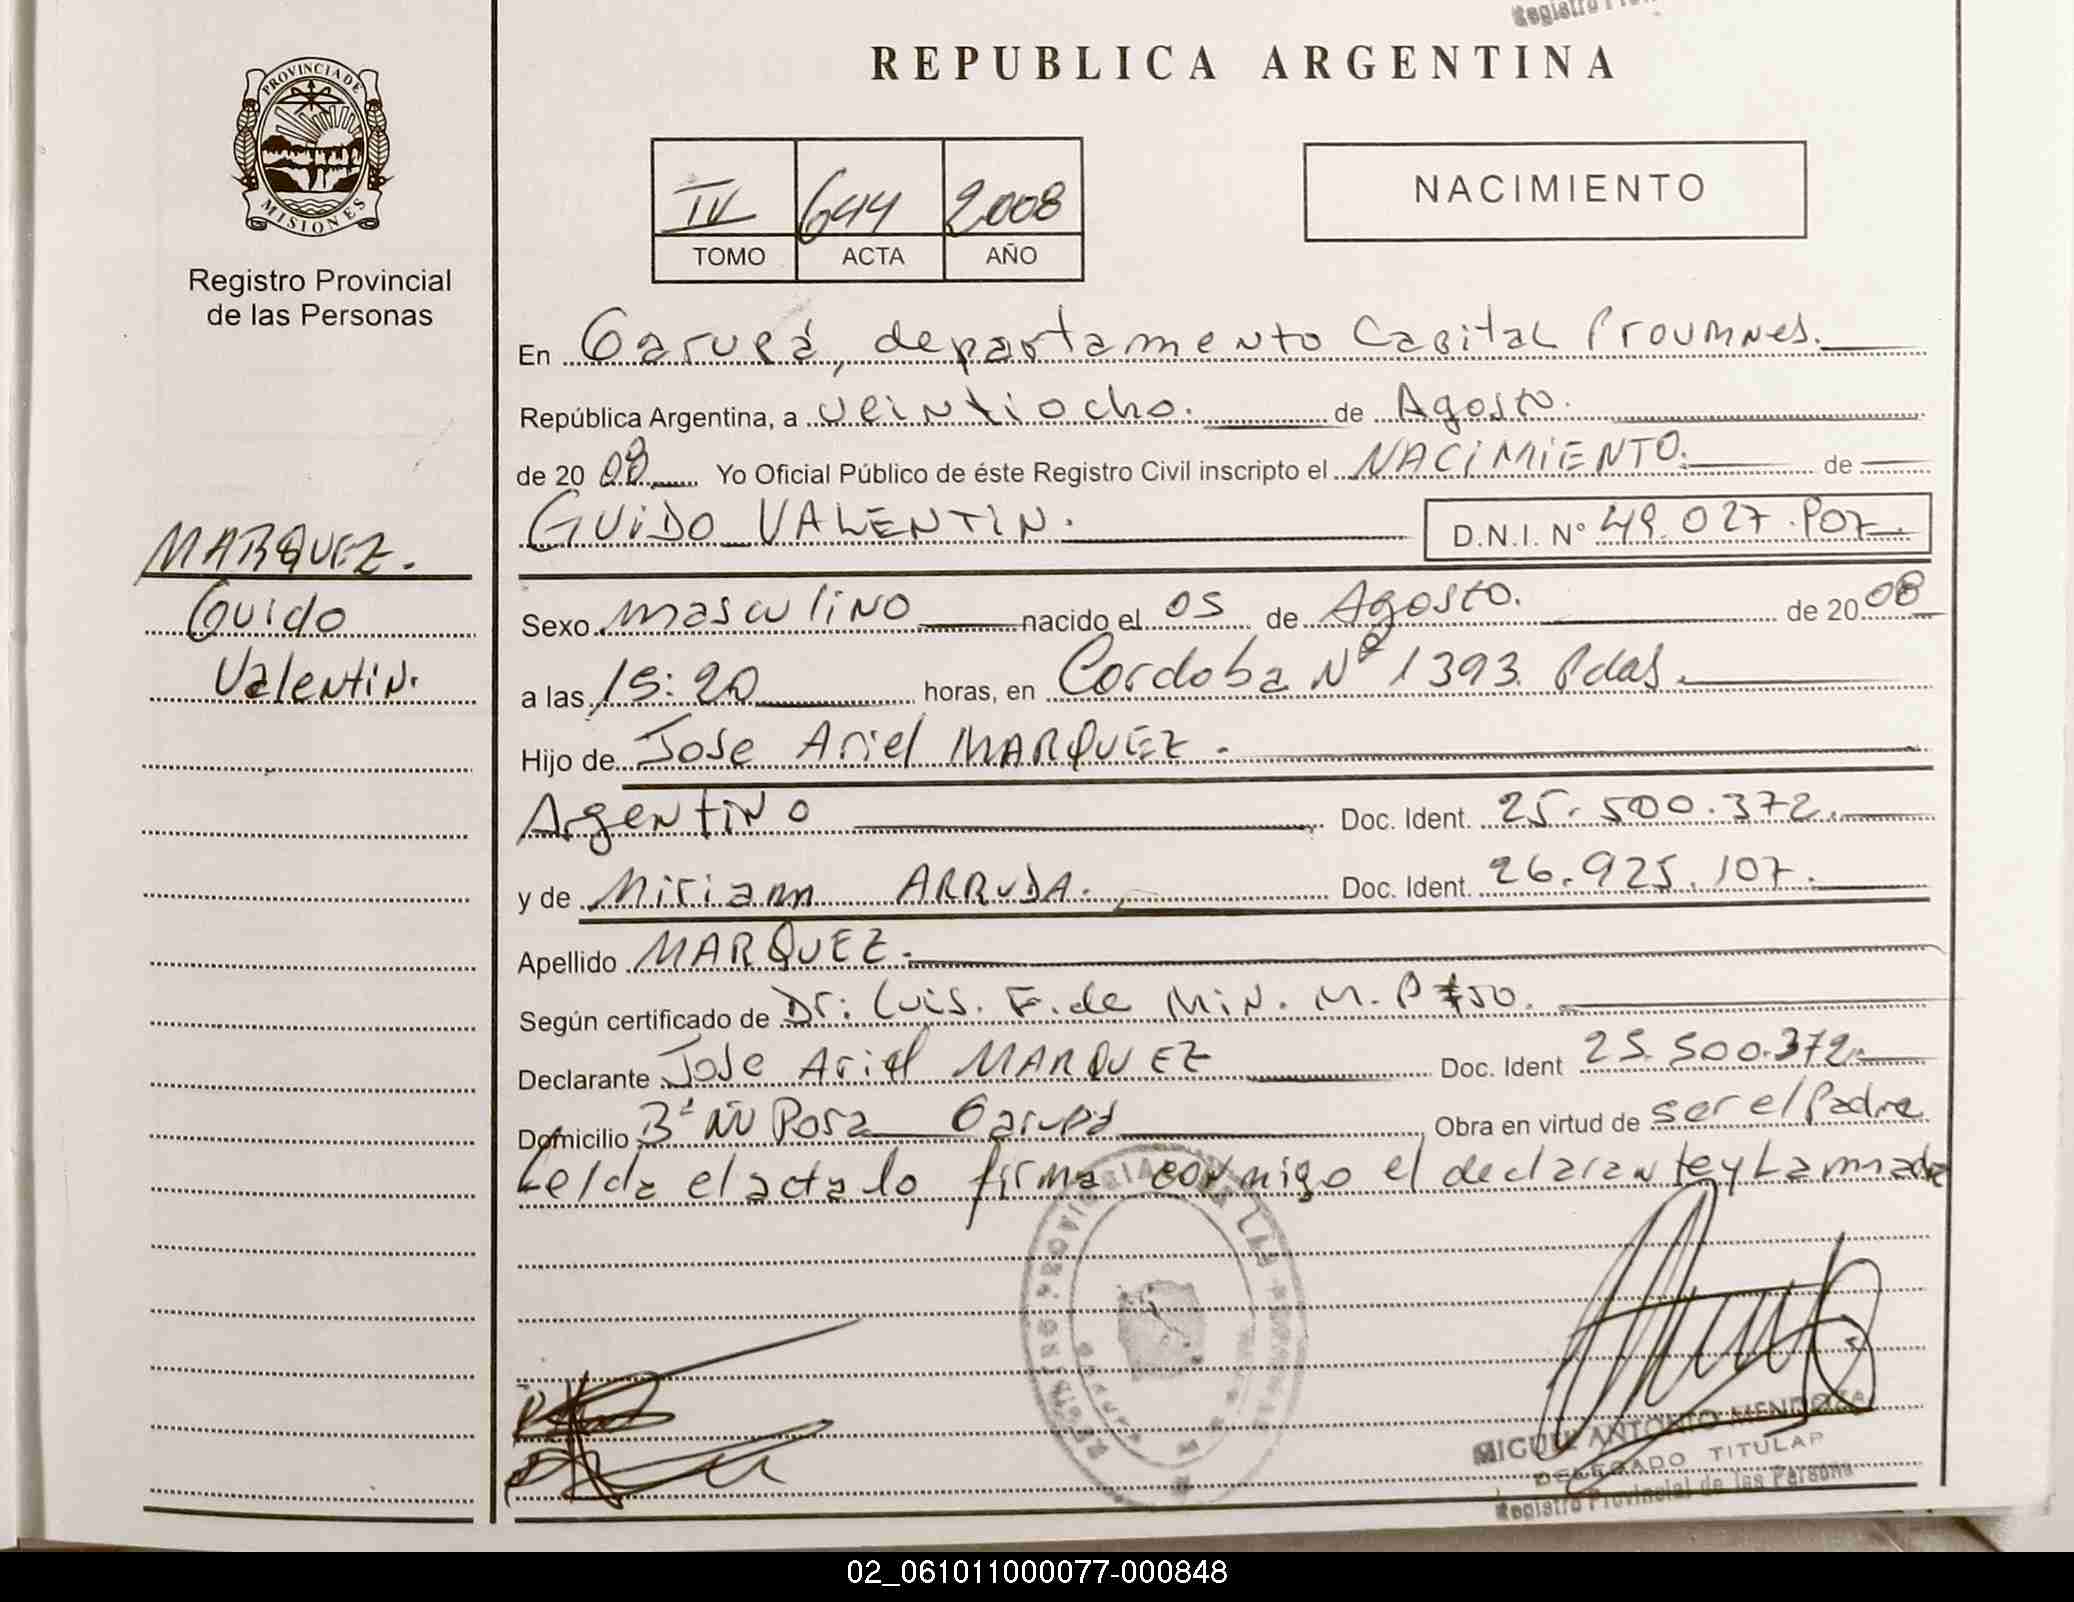 Registro
REPUBLICA ARGENTINA
PROVINCIA DE
MISIONES
Registro Provincial
de las Personas
IV 644 2008
TOMO ACTA AÑO
NACIMIENTO
En Garupá, departamento Capital Prov Mnes.
República Argentina, a veintiocho. de Agosto.
de 20 08 Yo Oficial Público de éste Registro Civil inscripto el NACIMIENTO. de
GUIDO VALENTIN. D.N.I. N° 49.027.907
MARQUEZ.
Guido
Valentin.
Sexo masculino nacido el 05 de Agosto. de 20 08
a las 15:20 horas, en Cordoba Nº 1393 Pdas.
Hijo de Jose Ariel MARQUEZ.
Argentino Doc. Ident. 25.500.372.
y de Miriam ARRUDA. Doc. Ident. 26.925.107.
Apellido MARQUEZ.
Según certificado de Dr: Luis. F. de Min. M. P 450.
Declarante Jose Ariel MARQUEZ Doc. Ident 25.500.372.
Domicilio Bº Ñu Pora Garupá Obra en virtud de ser el Padre
Leida el acta lo firma conmigo el declarante y La madre
REGISTRO PROVINCIAL DE LAS PERSONAS
MIGUEL ANTONIO MENDOZA
DELEGADO TITULAR
Registro Provincial de las Persona
02_061011000077-000848